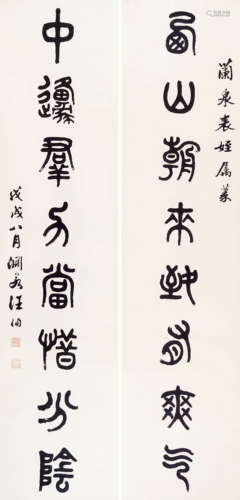 蘭泉表姪屬篆
西山朝來致有爽气
中邍群方當惜分陰
戊戌八月淵若汪洵